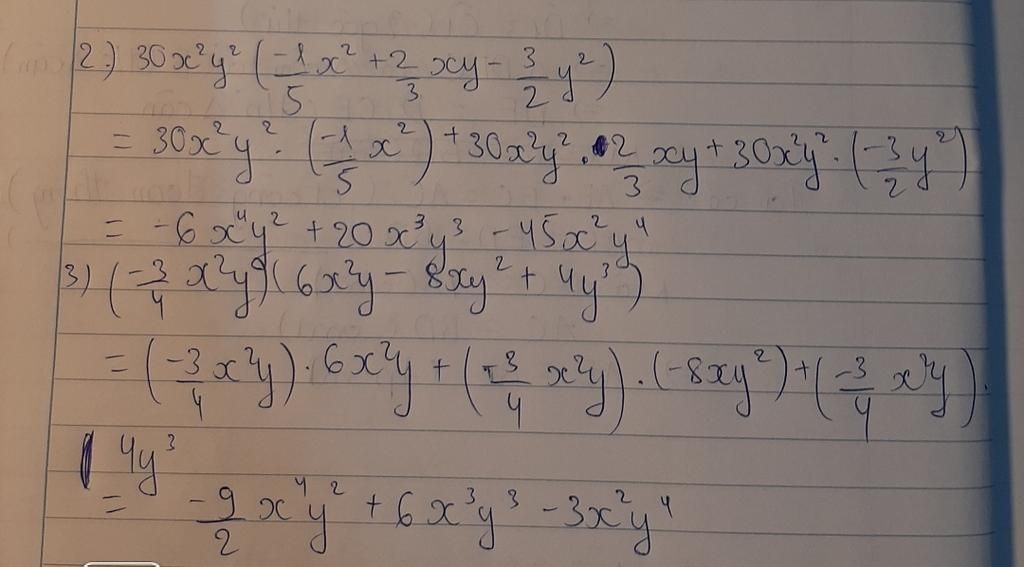 2.) 30x²y² (-1/5 x² + 2/3 xy - 3/2 y²)
= 30x²y² · (-1/5 x²) + 30x²y² · 2/3 xy + 30x²y² · (-3/2 y²)
= -6x⁴y² + 20x³y³ - 45x²y⁴
3) (-3/4 x²y)(6x²y - 8xy² + 4y³)
= (-3/4 x²y) · 6x²y + (-3/4 x²y) · (-8xy²) + (-3/4 x²y) ·
4y³
= -9/2 x⁴y² + 6x³y³ - 3x²y⁴